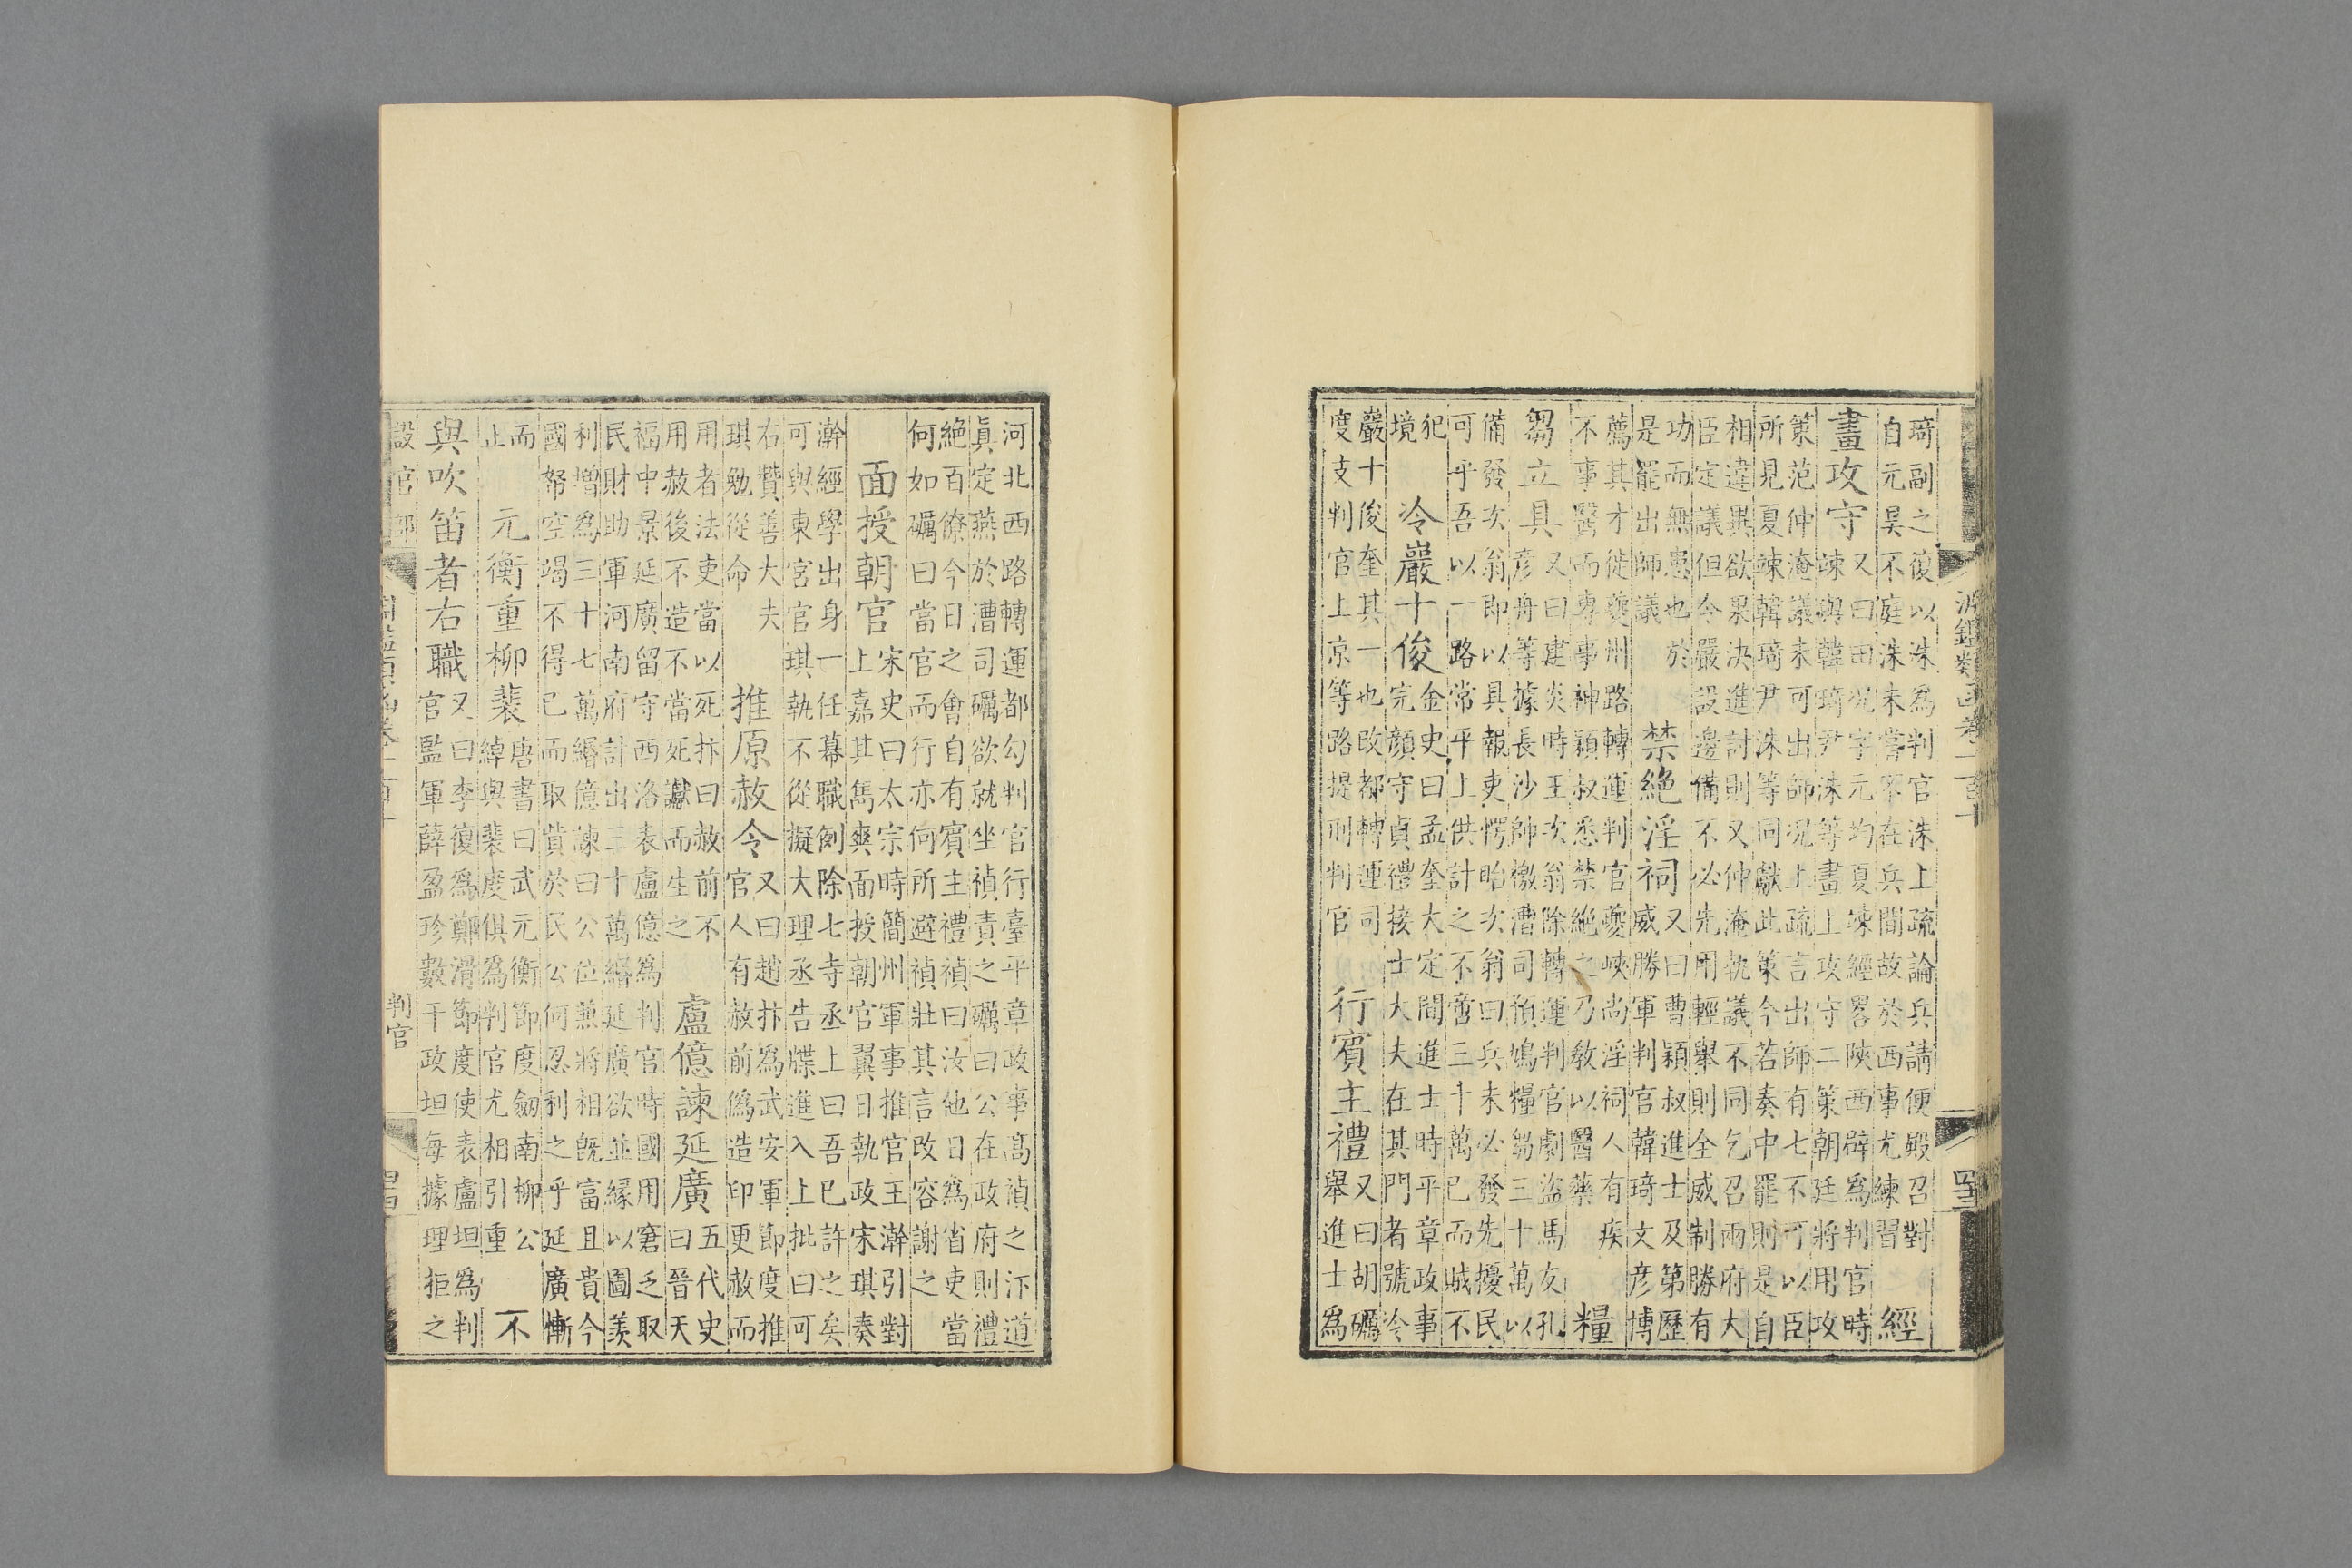 淵鑑類函卷一百十
琦副之復以洙為判官洙上疏論兵請便殿召對
自元昊不庭洙未嘗不在兵間故於西事尤練習
經
畫攻守
又曰田况字元均夏竦經畧陝西辟為判官時
竦與韓琦尹洙等畫上攻守二策朝廷將用攻
策范仲淹議未可出師况上疏言出師有七不可以臣
所見夏竦韓琦尹洙等同獻此策今若奏中罷則是自
相違異欲果決進討則又仲淹執議不同乞召兩府大
臣定議但令嚴設邊備不必先用輕舉則全威制勝有
功而無患也於
是罷出師議
禁絶淫祠
又曰曹穎叔進士及第歷
威勝軍判官韓琦文彦博
薦其才徙夔州路轉運判官夔峽尚淫祠人有疾
不事醫而專事神穎叔悉禁絶之乃敎以醫藥
糧
芻立具
又曰建炎時王次翁除轉運判官劇盜馬友孔
彦舟等據長沙帥檄漕司預鳩糧芻三十萬以
備發次翁即以具報吏愕眙次翁曰兵未必發先擾民
可乎吾以一路常平上供計之不啻三十萬已而賊不
犯
境
冷巖十俊
金史曰孟奎大定間進士時平章政事
完顏守貞禮接士大夫在其門者號冷
巖十俊奎其一也改都轉運司
度支判官上京等路提刑判官
行賓主禮
又曰胡礪
舉進士為
河北西路轉運都勾判官行臺平章政事高禎之汴道
真定燕於漕司礪欲就坐禎責之礪曰公在政府則禮
絶百僚今日之會自有賓主禮禎曰汝他日為省吏當
何如礪曰當官而行亦何所避禎壯其言改容謝之
面授朝官
宋史曰太宗時簡州軍事推官王澣引對
上嘉其雋爽面授朝官翼日執政宋琪奏
澣經學出身一任幕職例除七寺丞上曰吾已許之矣
可與東宮官琪執不從擬大理丞告牒進入上批曰可
右贊善大夫
琪勉從命
推原赦令
又曰趙抃為武安軍節度推
官人有赦前偽造印更赦而
用者法吏當以死抃曰赦前不
用赦後不造不當死讞而生之
盧億諫延廣
五代史
曰晉天
福中景延廣留守西洛表盧億為判官時國用窘乏取
民財助軍河南府計出三十萬緡延廣欲並緣以圖羨
利增為三十七萬緡億諫曰公位兼將相旣富且貴今
國帑空竭不得已而取貲於民公何忍利之乎延廣慚
而
止
元衡重柳裴
唐書曰武元衡節度劒南柳公
綽與裴度俱為判官尤相引重
不
與吹笛者右職
又曰李復為鄭滑節度使表盧坦為判
官監軍薛盈珍數干政坦每據理拒之
設官部
判官